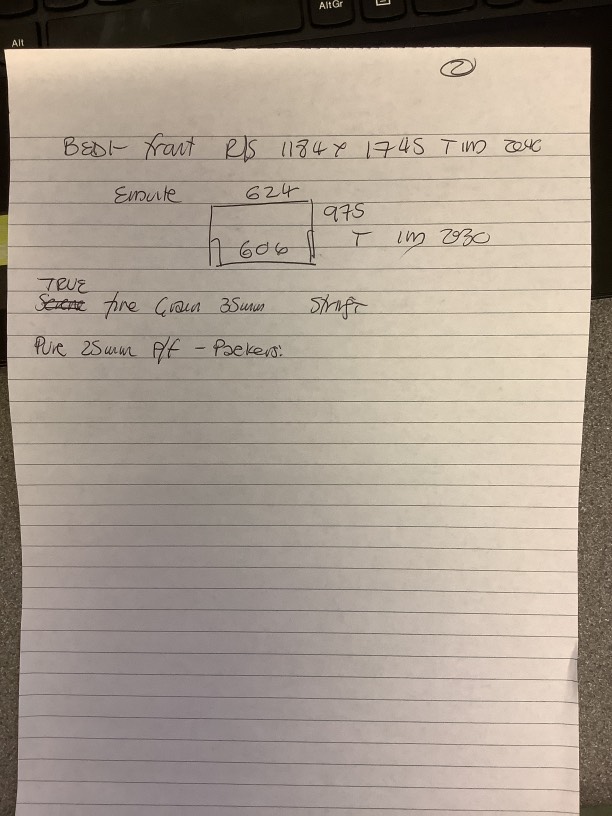 Alt
AltGr
2
BED1- front R/S 1184 x 1745 T 1M 2040
Ensuite 624
975
606 T 1M 2030
TRUE
fine Grain 35mm String
Pure 25mm P/F - Packers: